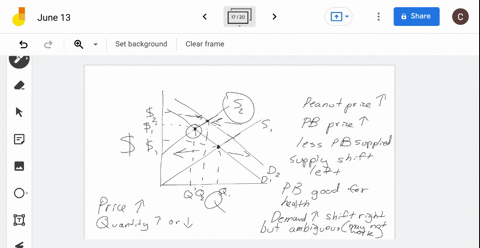 June 13
17 / 20
Share
C
Set background
Clear frame
$2
$1
$1
$
S2
S1
D2
D1
Q Q2 Q1
Q
Price ↑
Quantity ? or ↓
Peanut price ↑
PB price ↑
less PB supplied
supply shift
left
PB good for
health
Demand ↑ shift right
but ambiguous (may not